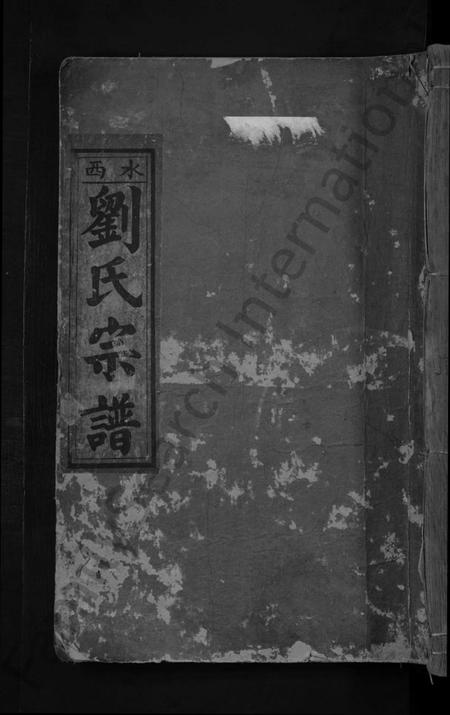 水西
劉氏宗譜
FamilySearch International